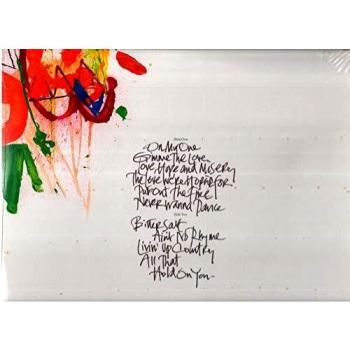 Side One
On My One
Gimme The Love
Love, Hope and Misery
The Love We're Hoping For
Put Out The Fire
Never Wanna Dance
Side Two
Bitter Salt
Ain't No Rhyme
Livin' Up Country
All That
Hold On You